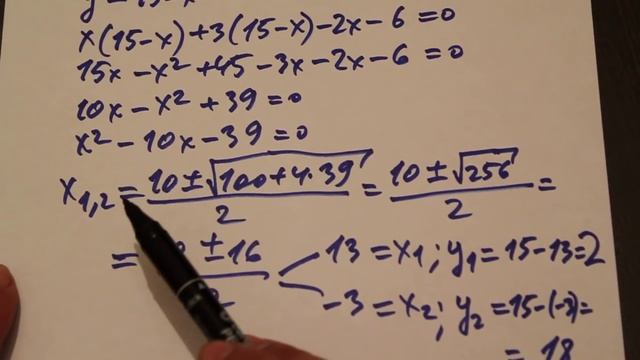 x(15-x)+3(15-x)-2x-6=0
15x-x²+45-3x-2x-6=0
10x-x²+39=0
x²-10x-39=0
x₁,₂=(10±√(100+4·39))/2=(10±√256)/2=
= ±16 13=x₁; y₁=15-13=2
-3=x₂; y₂=15-(-3)=
= 18